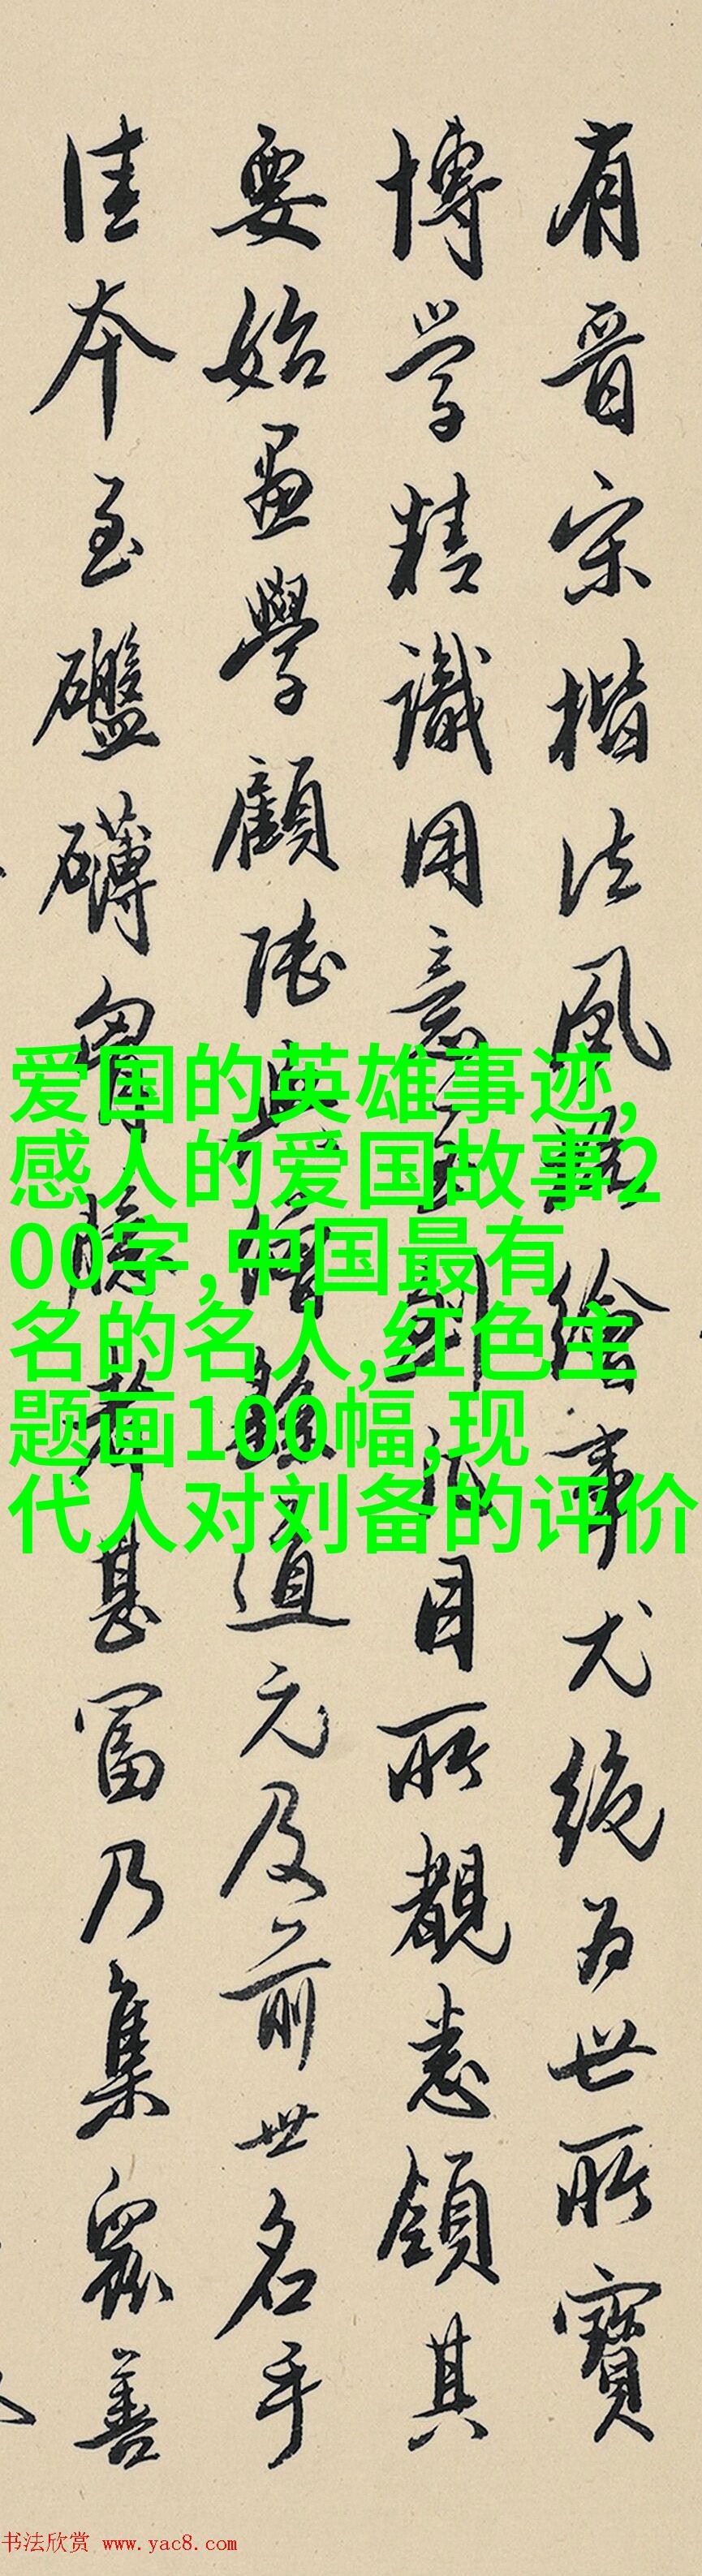 有晉宋楷法風繪事尤絶為世所寶
博學精識用意到目所覩悉領其
要始畫學顧陸與僧繇道元及前世名手
佳本至礴胷臆者甚富乃集衆善
爱国的英雄事迹,
感人的爱国故事2
00字,中国最有
名的名人,红色主
题画100幅,现
代人对刘备的评价
书法欣赏 www.yac8.com